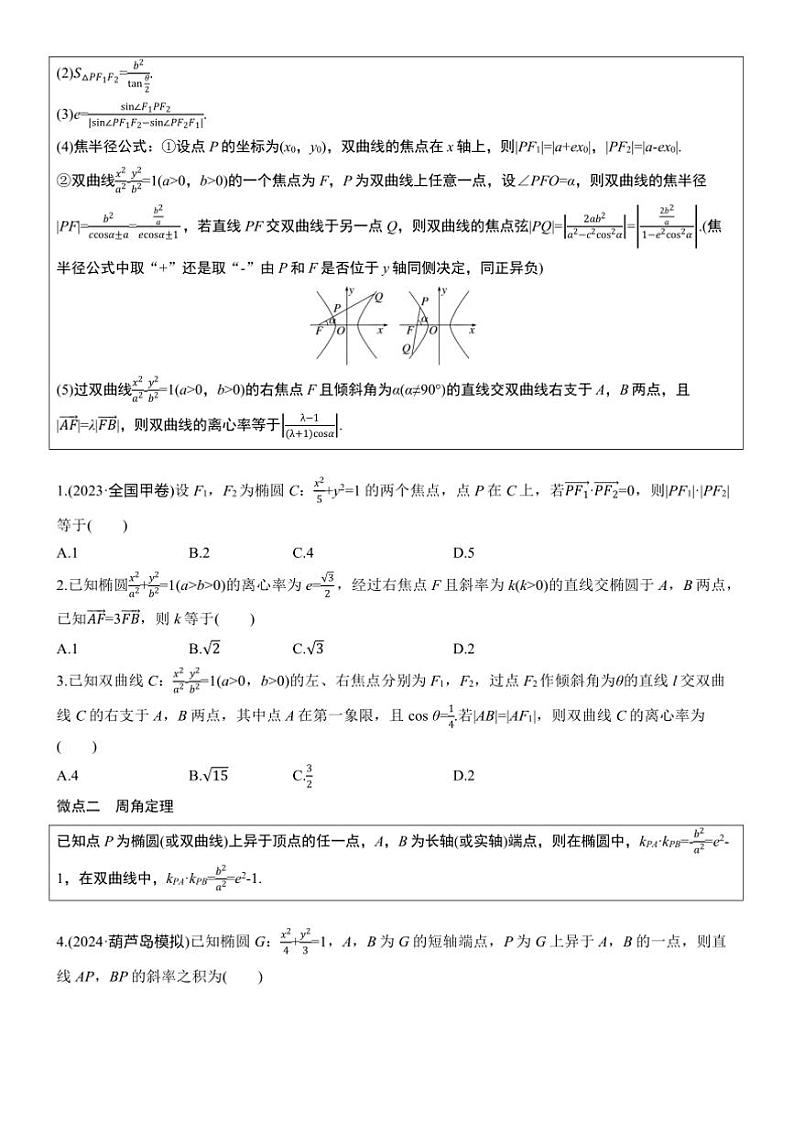 (2)S△PF₁F₂=b²/tan(θ/2).
(3)e=sin∠F₁PF₂/|sin∠PF₁F₂−sin∠PF₂F₁|.
(4)焦半径公式：①设点 P 的坐标为(x₀，y₀)，双曲线的焦点在 x 轴上，则|PF₁|=|a+ex₀|，|PF₂|=|a-ex₀|.
②双曲线x²/a²-y²/b²=1(a>0，b>0)的一个焦点为 F，P 为双曲线上任意一点，设∠PFO=α，则双曲线的焦半径
|PF|=b²/(ccosα±a)=(b²/a)/(ecosα±1)，若直线 PF 交双曲线于另一点 Q，则双曲线的焦点弦|PQ|=|2ab²/(a²−c²cos²α)|=|(2b²/a)/(1−e²cos²α)|.(焦
半径公式中取“+”还是取“-”由 P 和 F 是否位于 y 轴同侧决定，同正异负)
y Q P α F O x
y P α F O x Q
(5)过双曲线x²/a²-y²/b²=1(a>0，b>0)的右焦点 F 且倾斜角为α(α≠90°)的直线交双曲线右支于 A，B 两点，且
|AF→|=λ|FB→|，则双曲线的离心率等于|(λ−1)/((λ+1)cosα)|.
1.(2023·全国甲卷)设 F₁，F₂为椭圆 C：x²/5+y²=1 的两个焦点，点 P 在 C 上，若PF₁→·PF₂→=0，则|PF₁|·|PF₂|
等于(　　)
A.1 B.2 C.4 D.5
2.已知椭圆x²/a²+y²/b²=1(a>b>0)的离心率为 e=√3/2，经过右焦点 F 且斜率为 k(k>0)的直线交椭圆于 A，B 两点，
已知AF→=3FB→，则 k 等于(　　)
A.1 B.√2 C.√3 D.2
3.已知双曲线 C：x²/a²-y²/b²=1(a>0，b>0)的左、右焦点分别为 F₁，F₂，过点 F₂作倾斜角为θ的直线 l 交双曲
线 C 的右支于 A，B 两点，其中点 A 在第一象限，且 cos θ=1/4.若|AB|=|AF₁|，则双曲线 C 的离心率为
(　　)
A.4 B.√15 C.3/2 D.2
微点二　周角定理
已知点 P 为椭圆(或双曲线)上异于顶点的任一点，A，B 为长轴(或实轴)端点，则在椭圆中，kPA·kPB=-b²/a²=e²-
1，在双曲线中，kPA·kPB=b²/a²=e²-1.
4.(2024·葫芦岛模拟)已知椭圆 G：x²/4+y²/3=1，A，B 为 G 的短轴端点，P 为 G 上异于 A，B 的一点，则直
线 AP，BP 的斜率之积为(　　)